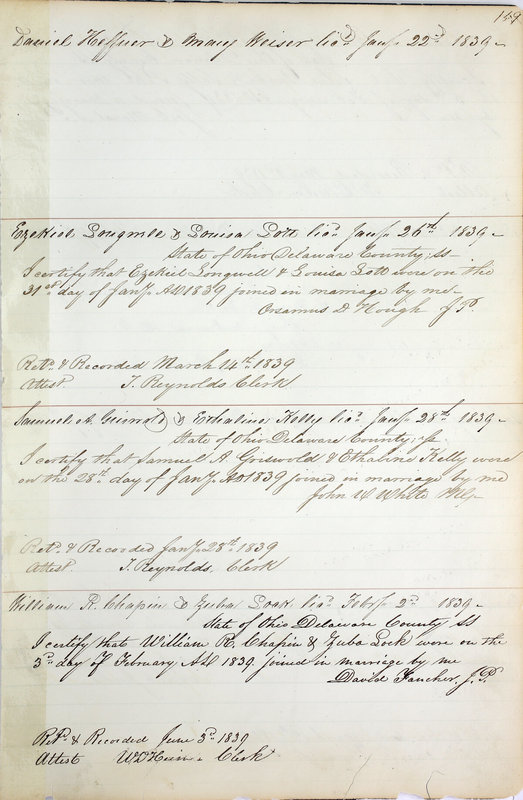 159
Daniel Heffner & Mary Weiser licd Jany 22d 1839
Ezekiel Longwell & Louisa Lott licd Jany 26th 1839
State of Ohio Delaware County; ss
I certify that Ezekiel Longwell & Louisa Lott were on the
31st day of Jany. AD 1839 joined in marriage by me
Orsamus D Hough J P.
Retd. & Recorded March 14th 1839
Attest T. Reynolds Clerk
Samuel A. Griswold & Ethaline Kelly licd Jany 28th 1839
State of Ohio Delaware County; ss.
I certify that Samuel A Griswold & Ethaline Kelly were
on the 28th day of Jany. AD 1839 joined in marriage by me
John W White
Retd. & Recorded Jany. 28th 1839
Attest. T. Reynolds, Clerk
William R. Chapin & Zuba Lock licd Feby 2d 1839
State of Ohio Delaware County ss
I certify that William R. Chapin & Zuba Lock were on the
3d day of February AD 1839 joined in marriage by me
David Fancher, J.P.
Retd. & Recorded June 3d 1839
Attest W D Heim Clerk